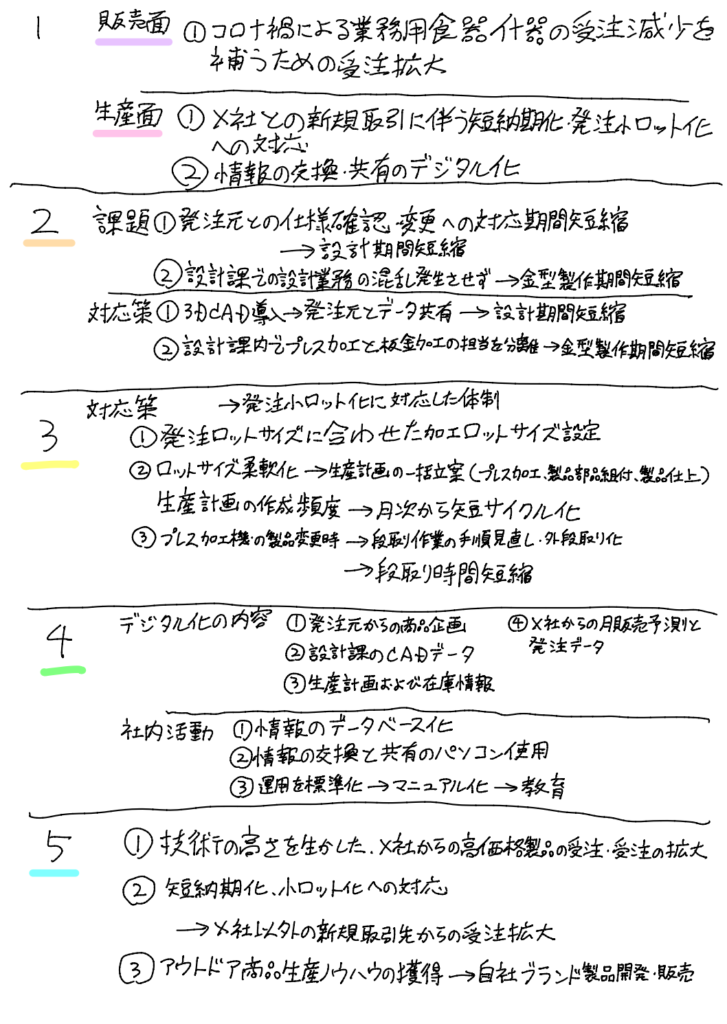 1 販売面 ①コロナ禍による業務用食器什器の受注減少を
補うための受注拡大
生産面 ①X社との新規取引に伴う短納期化・発注小ロット化
への対応
②情報の交換・共有のデジタル化
2 課題①発注元との仕様確認・変更への対応期間短縮
→設計期間短縮
②設計課での設計業務の混乱発生させず→金型製作期間短縮
対応策①3DCAD導入→発注元とデータ共有→設計期間短縮
②設計課内でプレス加工と板金加工の担当を分離→金型製作期間短縮
3 対応策 →発注小ロット化に対応した体制
①発注ロットサイズに合わせた加工ロットサイズ設定
②ロットサイズ柔軟化→生産計画の一括立案(プレス加工、製品部品組付、製品仕上)
生産計画の作成頻度→月次から短サイクル化
③プレス加工機の製品変更時→段取り作業の手順見直し・外段取り化
→段取り時間短縮
4 デジタル化の内容 ①発注元からの商品企画
②設計課のCADデータ
③生産計画および在庫情報
④X社からの月販売予測と
発注データ
社内活動 ①情報のデータベース化
②情報の交換と共有のパソコン使用
③運用を標準化→マニュアル化→教育
5 ①技術の高さを生かした、X社からの高価格製品の受注・受注の拡大
②短納期化、小ロット化への対応
→X社以外の新規取引先からの受注拡大
③アウトドア商品生産ノウハウの獲得→自社ブランド製品開発・販売